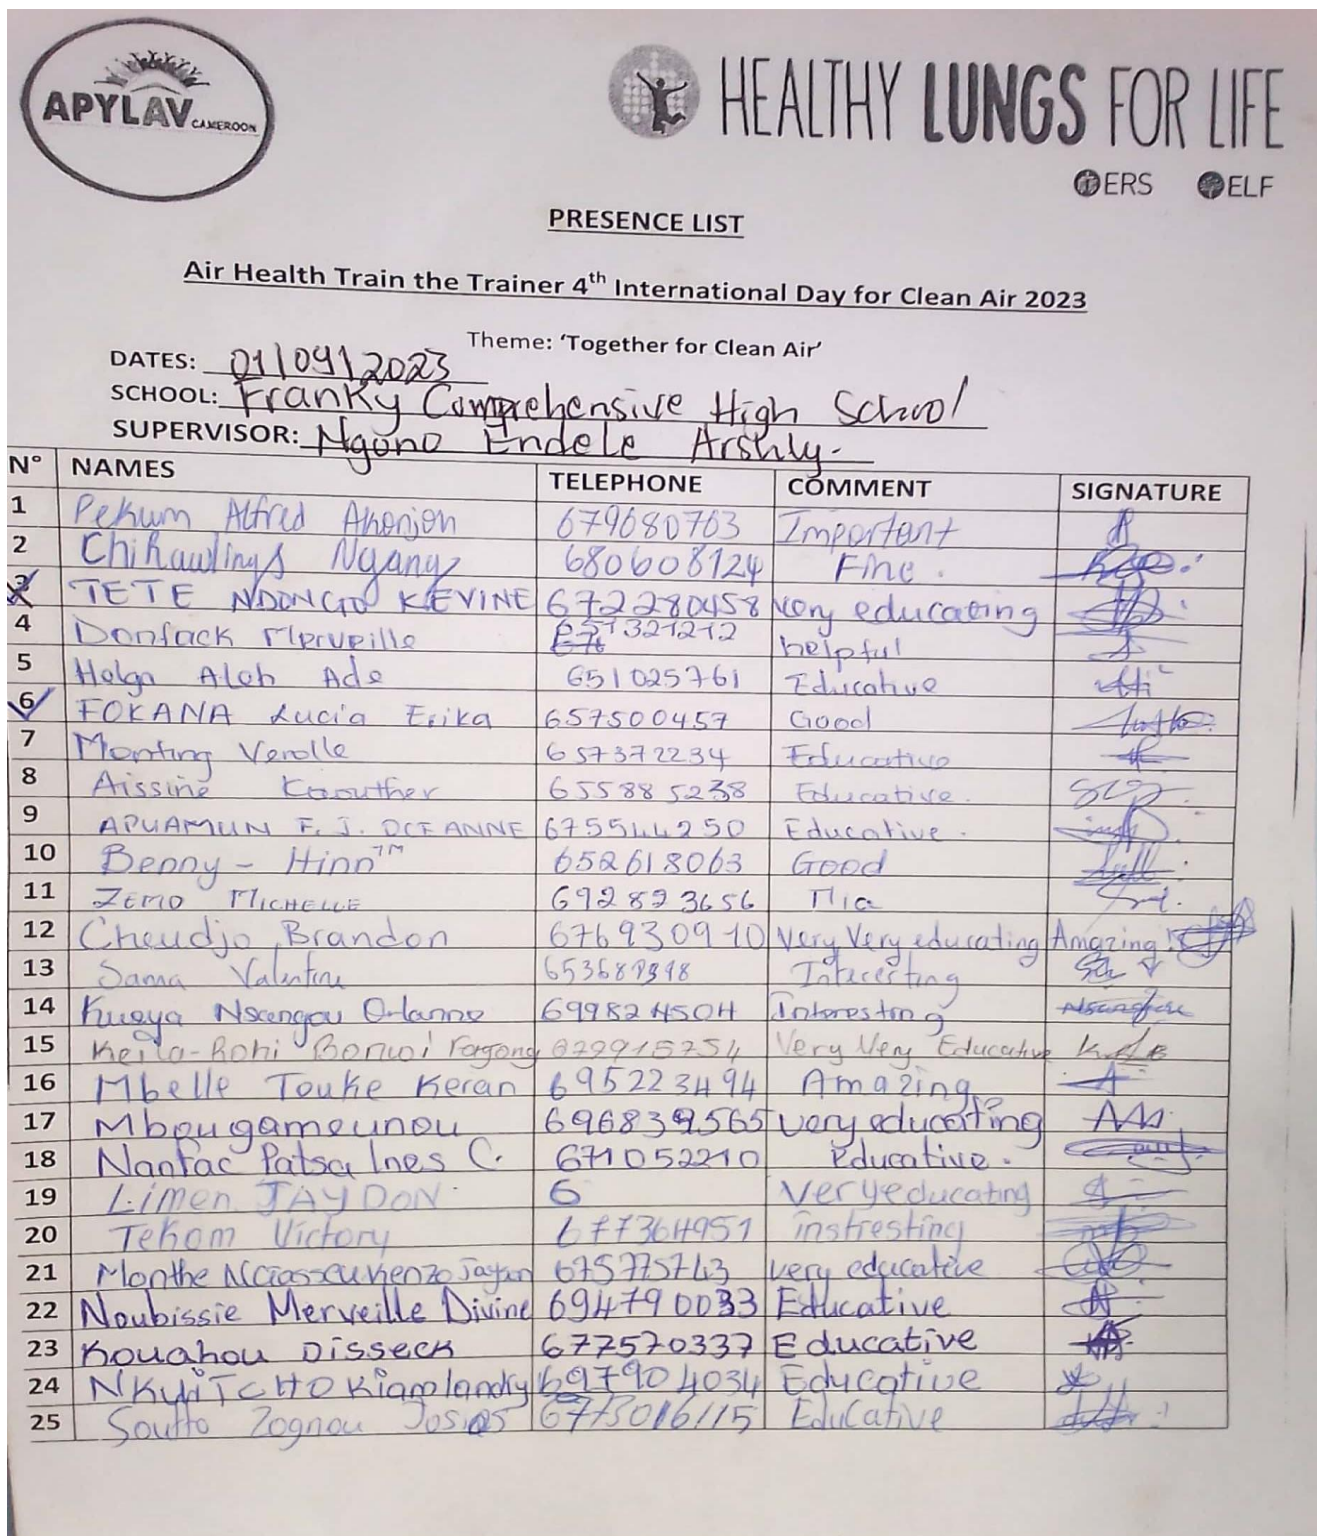 APYLAV CAMEROON
HEALTHY LUNGS FOR LIFE
ERS ELF
PRESENCE LIST
Air Health Train the Trainer 4th International Day for Clean Air 2023
Theme: ‘Together for Clean Air’
DATES: 01/09/2023
SCHOOL: Franky Comprehensive High School
SUPERVISOR: Ngono Endele Arshly.
N° NAMES TELEPHONE COMMENT SIGNATURE
1 Pekum Alfred Akonjon 679680763 Important
2 Chirawlings Ngang 680608124 Fine.
3 TETE NDONGO KEVINE 672280458 very educating
4 Donfack Merveille 651321212 helpful
5 Helga Aleh Ade 651025761 Educative
6 FOKANA Lucia Erika 657500457 Good
7 Monting Verolle 657372234 Educative
8 Aissine Kaouther 655885238 Educative.
9 APUAMUN F. J. OCEANNE 675544250 Educative.
10 Benny - Hinn TM 652618063 Good
11 ZEMO MICHELLE 692823656
12 Cheudjo Brandon 676930910 Very Very educating Amazing!
13 Sama Valentine Interesting
14 Kueya Nsangou Orlanne 699824504 Interesting
15 Keila-Rohi Bonwi Forgong 679915754 Very Very Educative K.R/B
16 Mbelle Touke Keran 695223494 Amazing
17 Mbougameunou 696839565 very educating
18 Nanfac Patsa Ines C. 671052210 Educative.
19 Limen JAYDON 6 Very educating
20 Tekom Victory 677364951 instresting
21 Monthe Kenzo Jayan 675775743 very educative
22 Noubissie Merveille Divine 694790033 Educative
23 Kouahou Disseck 677570337 Educative
24 697904034 Educative
25 Soutto Zognou 6773016115 Educative